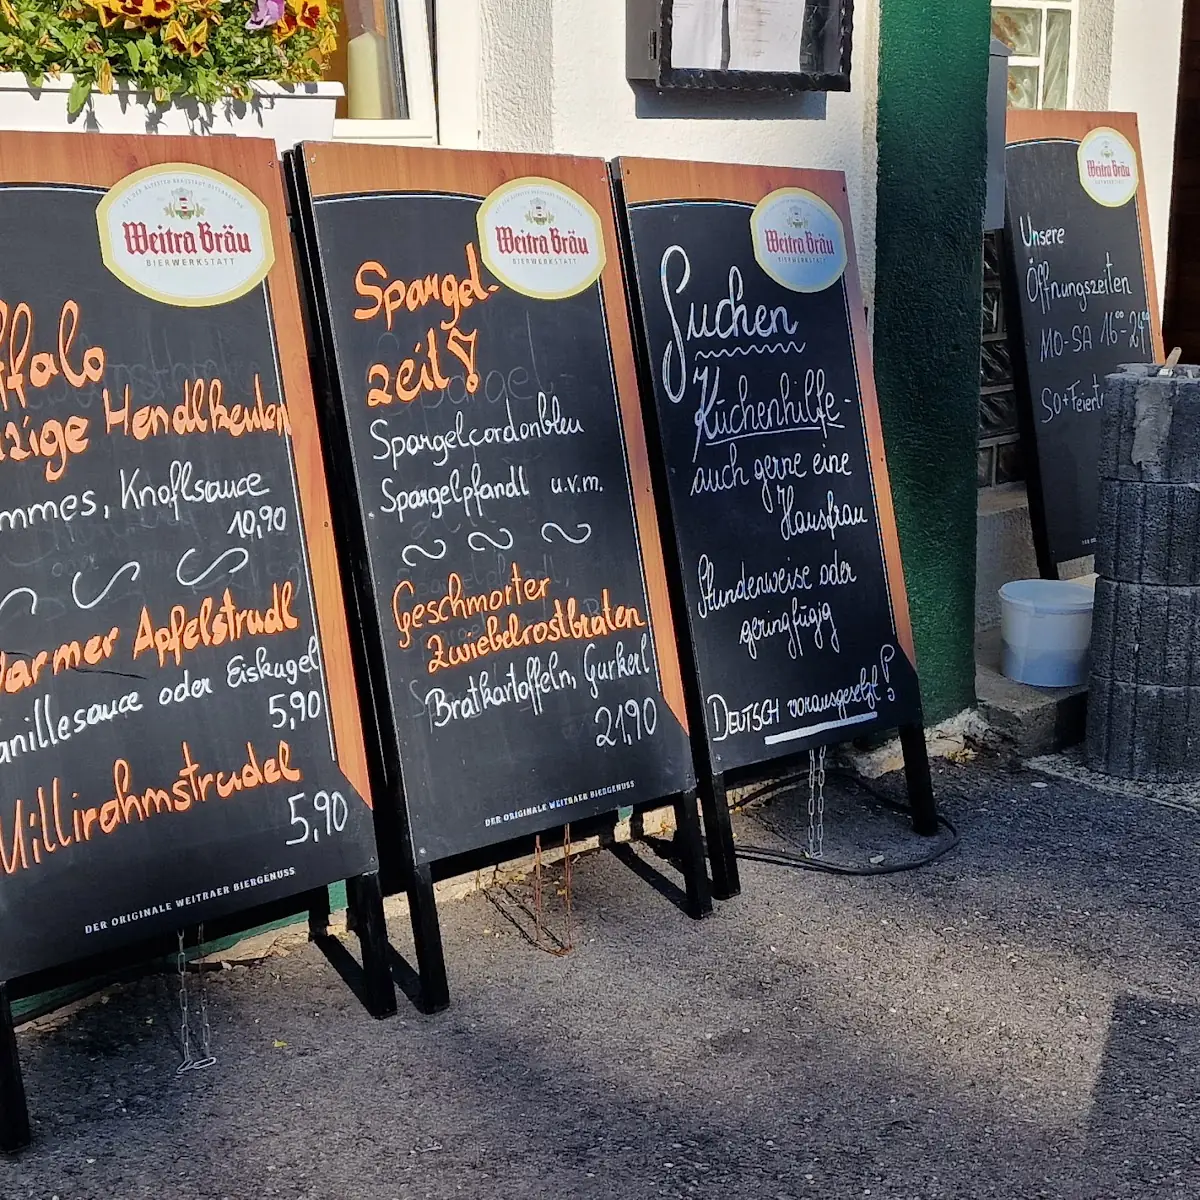 Weitra Bräu
BIERWERKSTATT
ffalo
zige Hendlkeulen
mmes, Knoflsauce
10,90
armer Apfelstrudl
anillesauce oder Eiskugel
5,90
Millirahmstrudel
5,90
DER ORIGINALE WEITRAER BIERGENUSS
Weitra Bräu
BIERWERKSTATT
Spargel-
zeit!
Spargelcordonbleu
Spargelpfandl u.v.m.
Geschmorter
Zwiebelrostbraten
Bratkartoffeln, Gurkerl
21,90
DER ORIGINALE WEITRAER BIERGENUSS
Weitra Bräu
BIERWERKSTATT
Suchen
Küchenhilfe-
auch gerne eine
Hausfrau
Stundenweise oder
geringfügig
DEUTSCH vorausgesetzt!
Weitra Bräu
BIERWERKSTATT
Unsere
Öffnungszeiten
MO-SA 16⁰⁰-24⁰⁰
SO+Feiert